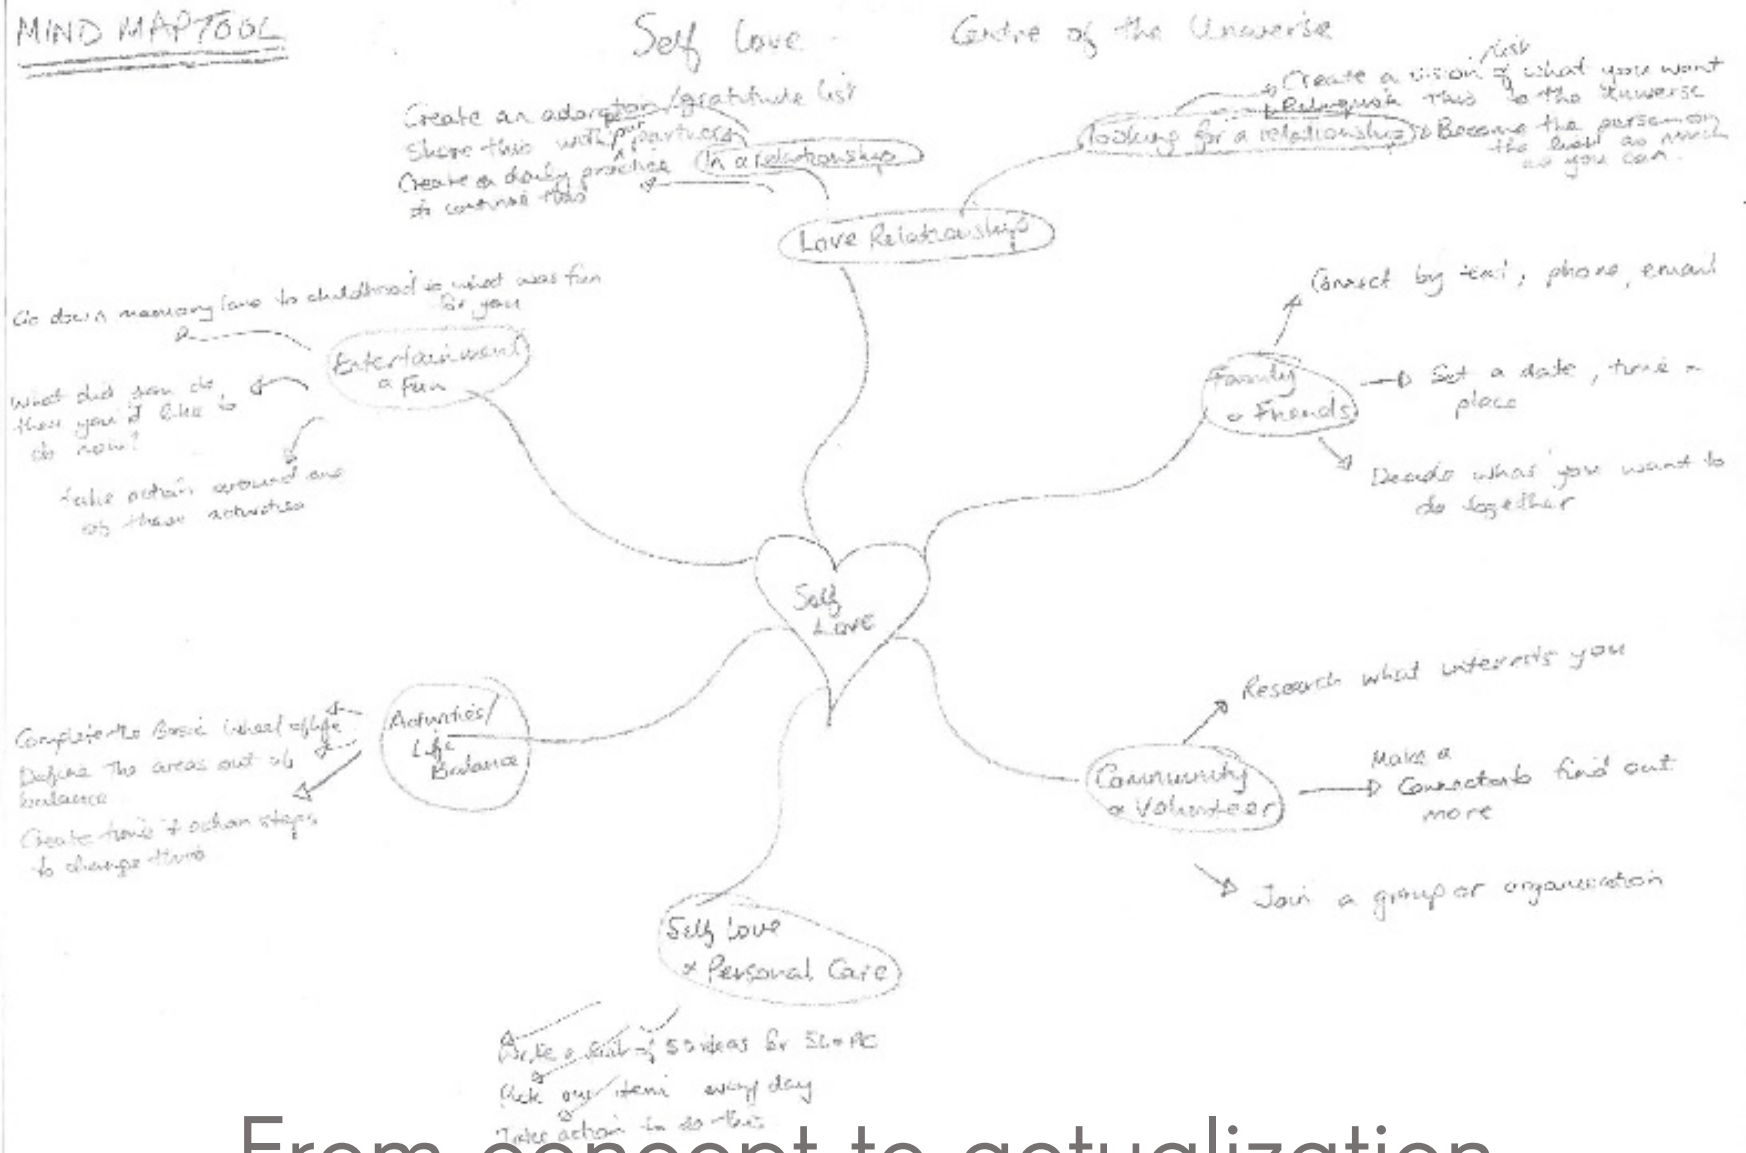 MIND MAP TOOL
Self Love
Centre of the Universe
Create an adoration/gratitude list
Share this with your partner
Create a daily practice
to continue this
In a relationship
looking for a relationship
Create a vision list of what you want
Relinquish this to the Universe
Become the person on
the list as much
as you can.
Love Relationship
Go down memory lane to childhood & what was fun
for you
Entertainment
& Fun
What did you do
then you'd like to
do now?
take action around one
of these activities
Family
& Friends
Connect by text, phone, email
Set a date, time &
place
Decide what you want to
do together
Self
Love
Activities/
Life
Balance
Complete the Basic wheel of life
Define the areas out of
balance
Create time & action steps
to change this
Community
& Volunteer
Research what interests you
Make a
Connection to find out
more
Join a group or organization
Self Love
& Personal Care
Write a list of 50 ideas for SL & PC
Pick one item every day
Take action to do this
From concept to actualization